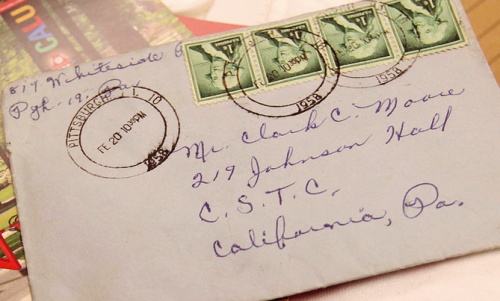 CALU
817 Whiteside
Pgh. 19. Pa.
PITTSBURGH
FE 20 1030PM
1958
20 10
1958
1958
Mr. Clark C. Moore
219 Johnson Hall
C. S. T. C.
California, Pa.